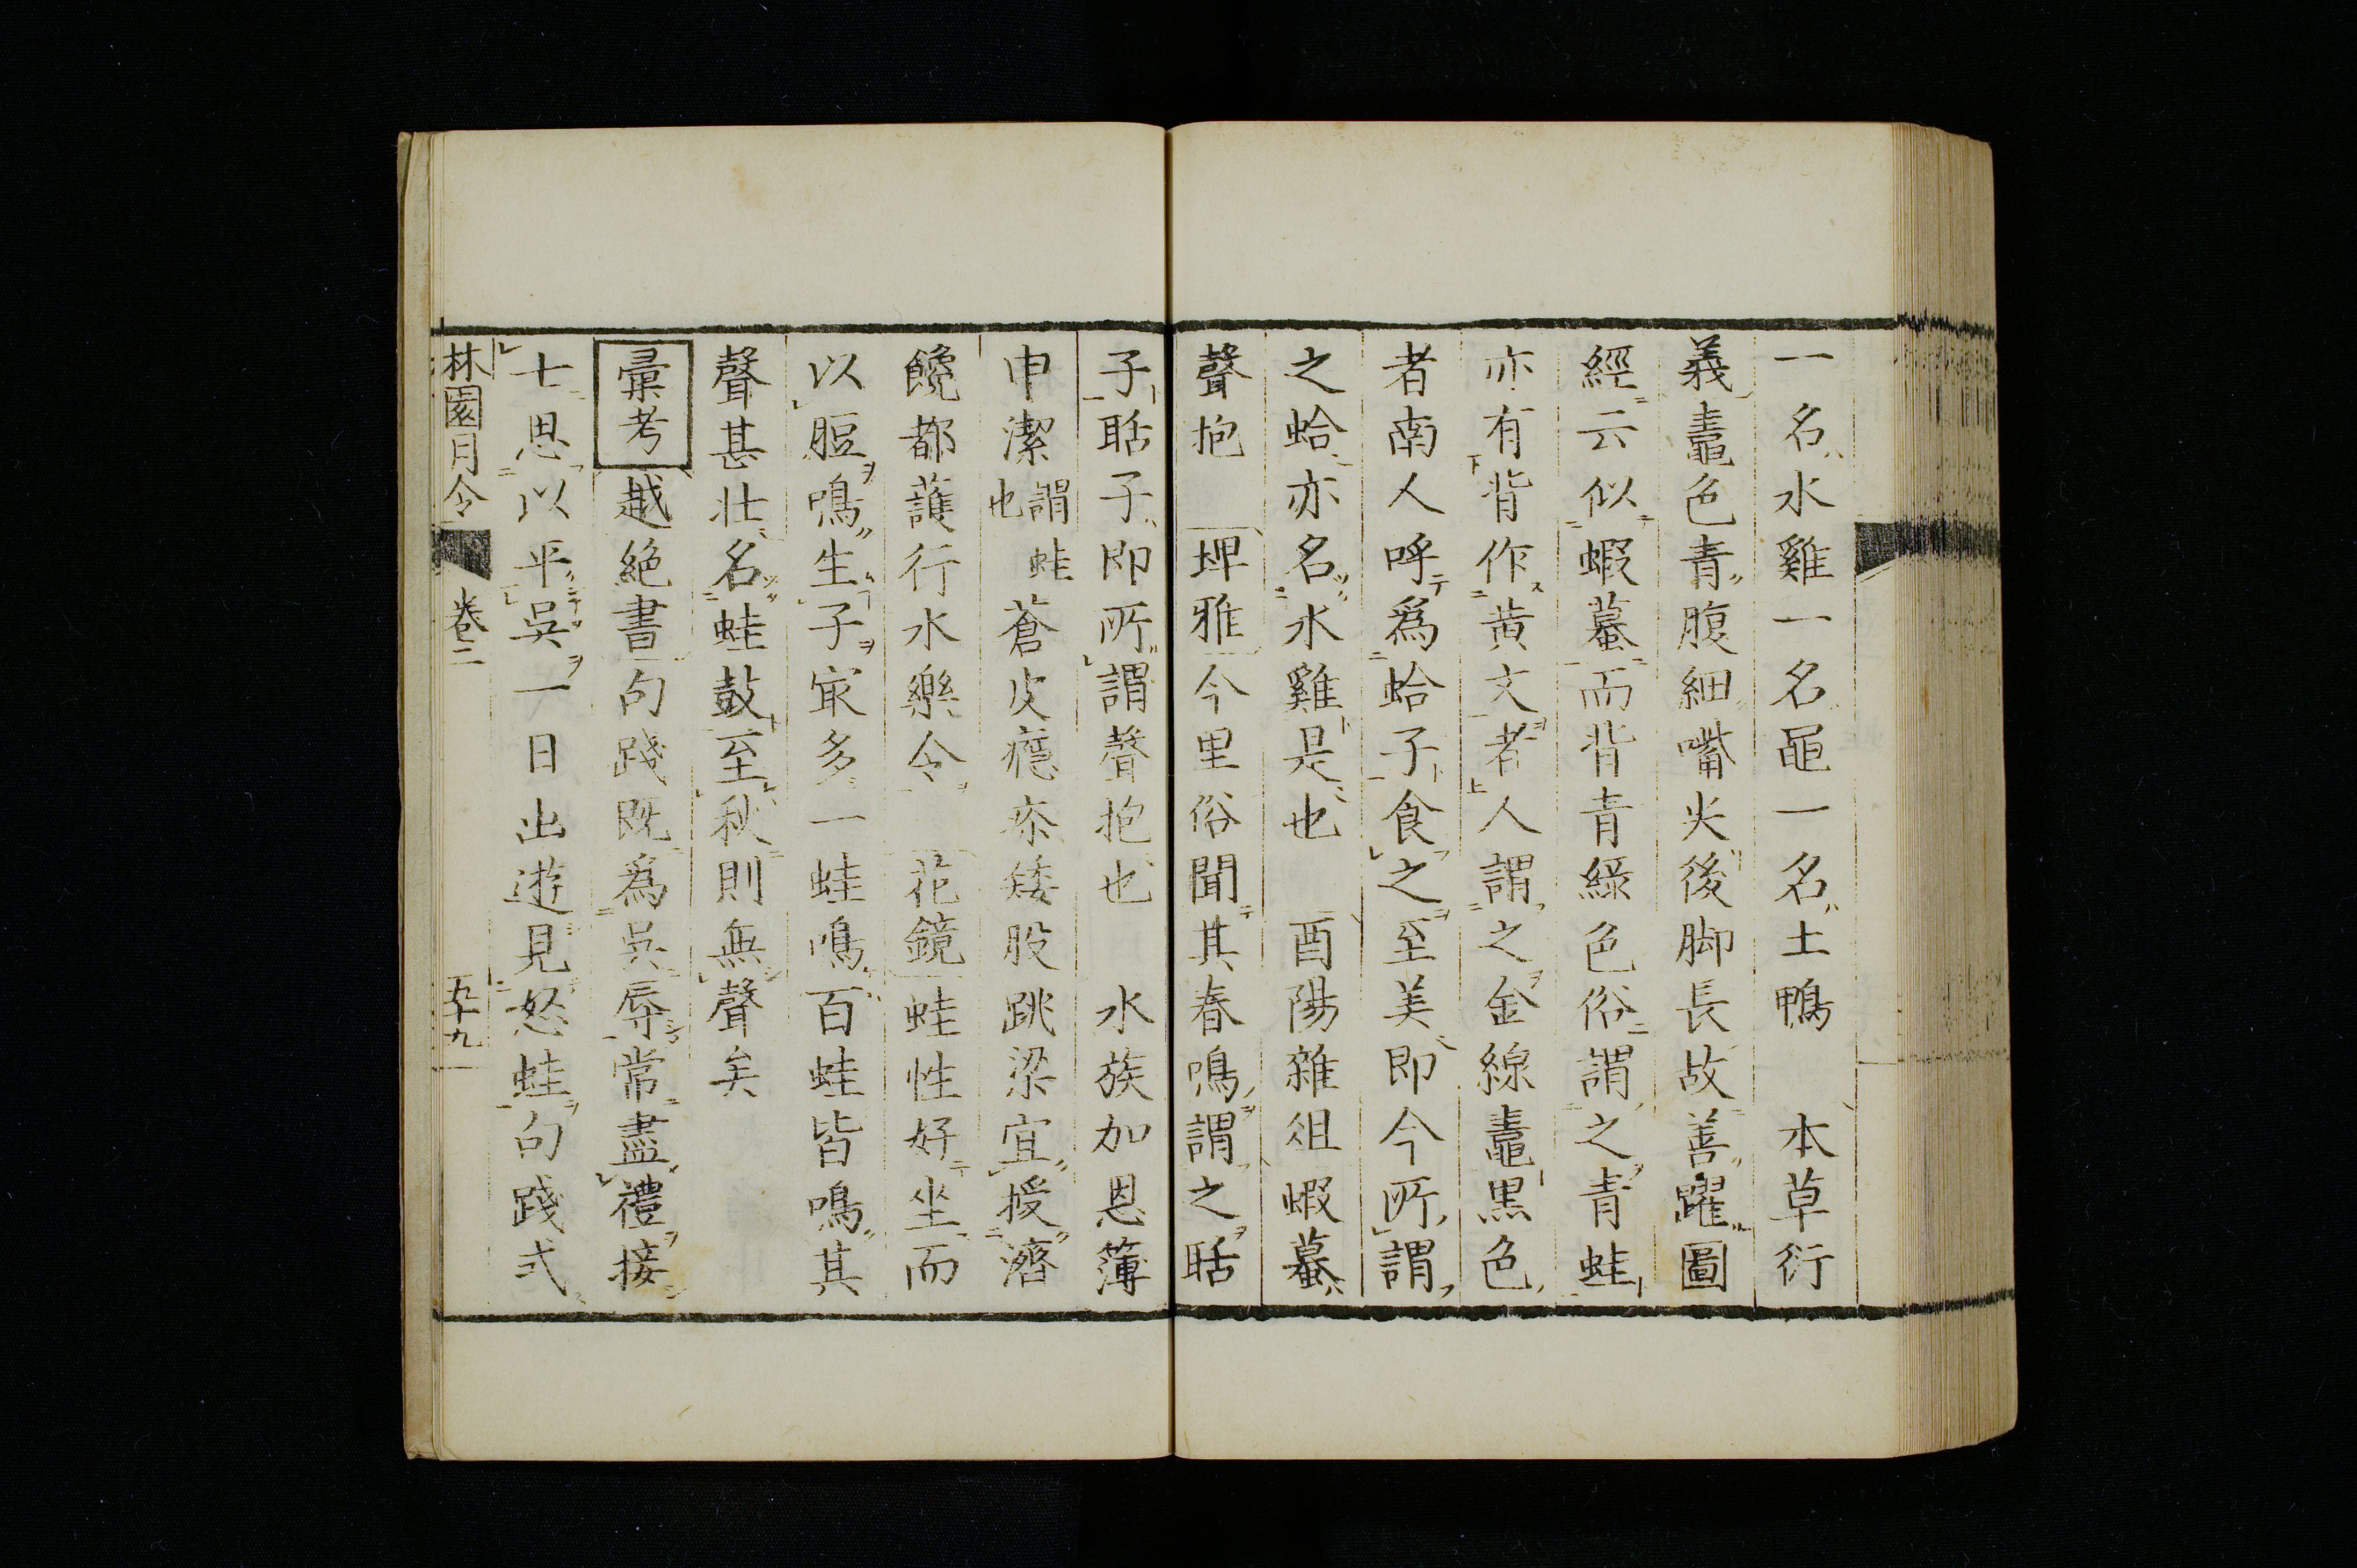 一名水雞一名黽一名土鴨　本草衍
義鼃色青腹細嘴尖後脚長故善躍圖
經云似蝦蟇而背青緑色俗謂之青蛙
亦有背作黄文者人謂之金線鼃黒色
者南人呼爲蛤子食之至美即今所謂
之蛤亦名水雞是也　酉陽雜俎蝦蟇
聲抱　埤雅今里俗聞其春鳴謂之聒
子聒子即所謂聲抱也　水族加恩簿
申潔謂蛙也　蒼皮癮疹矮股跳梁宜授濳
饞都護行水樂令　花鏡蛙性好坐而
以脰鳴生子㝡多一蛙鳴百蛙皆鳴其
聲甚壯名蛙鼓至秋則無聲矣
彙考越絶書句踐既爲呉辱常盡禮接
士思以平呉一日出遊見怒蛙句踐式
林園月令　卷二　五十九